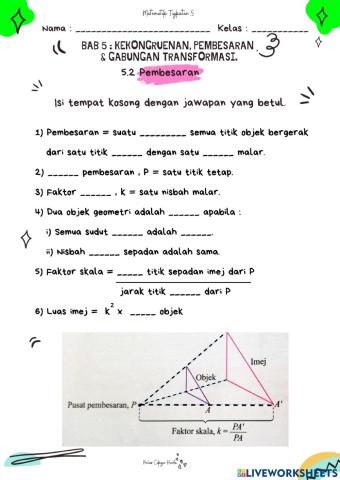 Matematik Tingkatan 5
Nama : ______________________ Kelas : __________
BAB 5 : KEKONGRUENAN, PEMBESARAN
& GABUNGAN TRANSFORMASI.
5.2 Pembesaran
Isi tempat kosong dengan jawapan yang betul.
1) Pembesaran = suatu _________ semua titik objek bergerak
dari satu titik ______ dengan satu ______ malar.
2) ______ pembesaran , P = satu titik tetap.
3) Faktor ______ , k = satu nisbah malar.
4) Dua objek geometri adalah ______ apabila :
i) Semua sudut ______ adalah ______.
ii) Nisbah ______ sepadan adalah sama.
5) Faktor skala = _____ titik sepadan imej dari P
jarak titik ______ dari P
6) Luas imej = k² x _____ objek
Imej
Objek
Pusat pembesaran, P
A
A'
Faktor skala, k = PA'
PA
LIVEWORKSHEETS